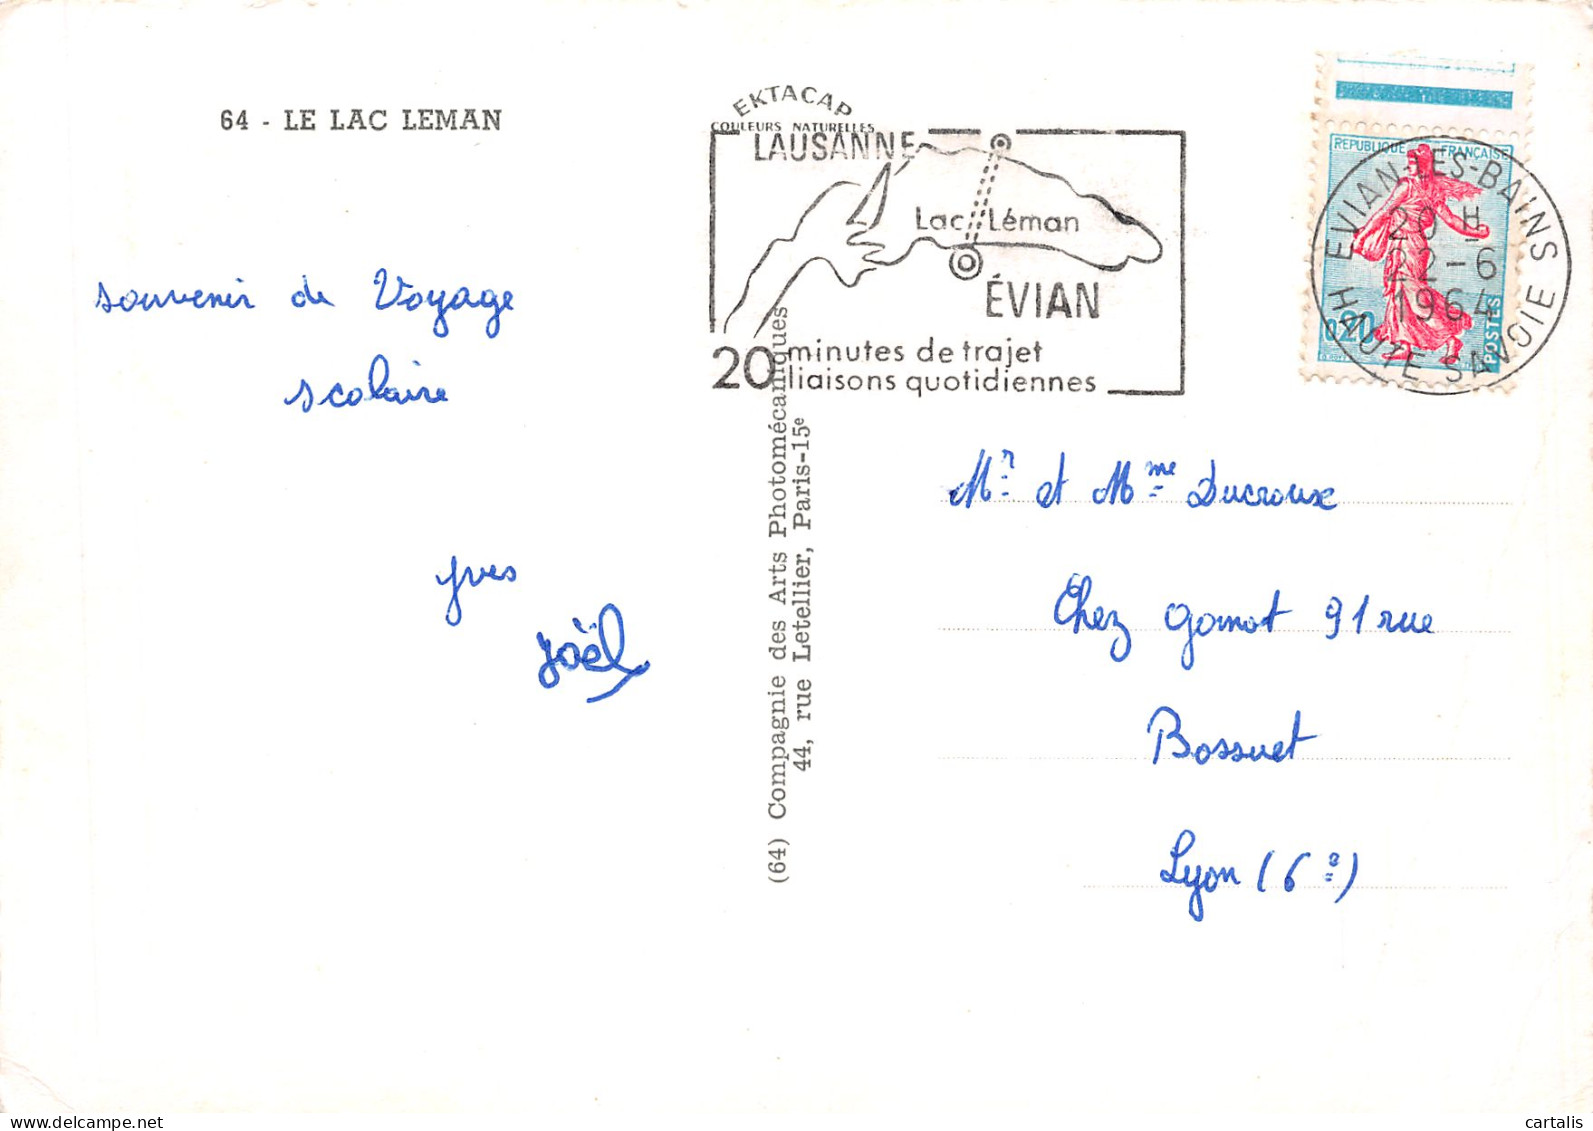 64 - LE LAC LEMAN
souvenir de Voyage
scolaire
yves
Joël
EKTACAP
COULEURS NATURELLES
LAUSANNE
Lac Léman
ÉVIAN
20 minutes de trajet
liaisons quotidiennes
(64) Compagnie des Arts Photomécaniques
44, rue Letellier, Paris-15e
REPUBLIQUE FRANÇAISE
0,20
POSTES
EVIAN-LES-BAINS
20 H
22-6
1964
HAUTE SAVOIE
Mr et Mme Ducroux
Chez Gamot 91 rue
Bossuet
Lyon (6e)
delcampe.net
cartalis